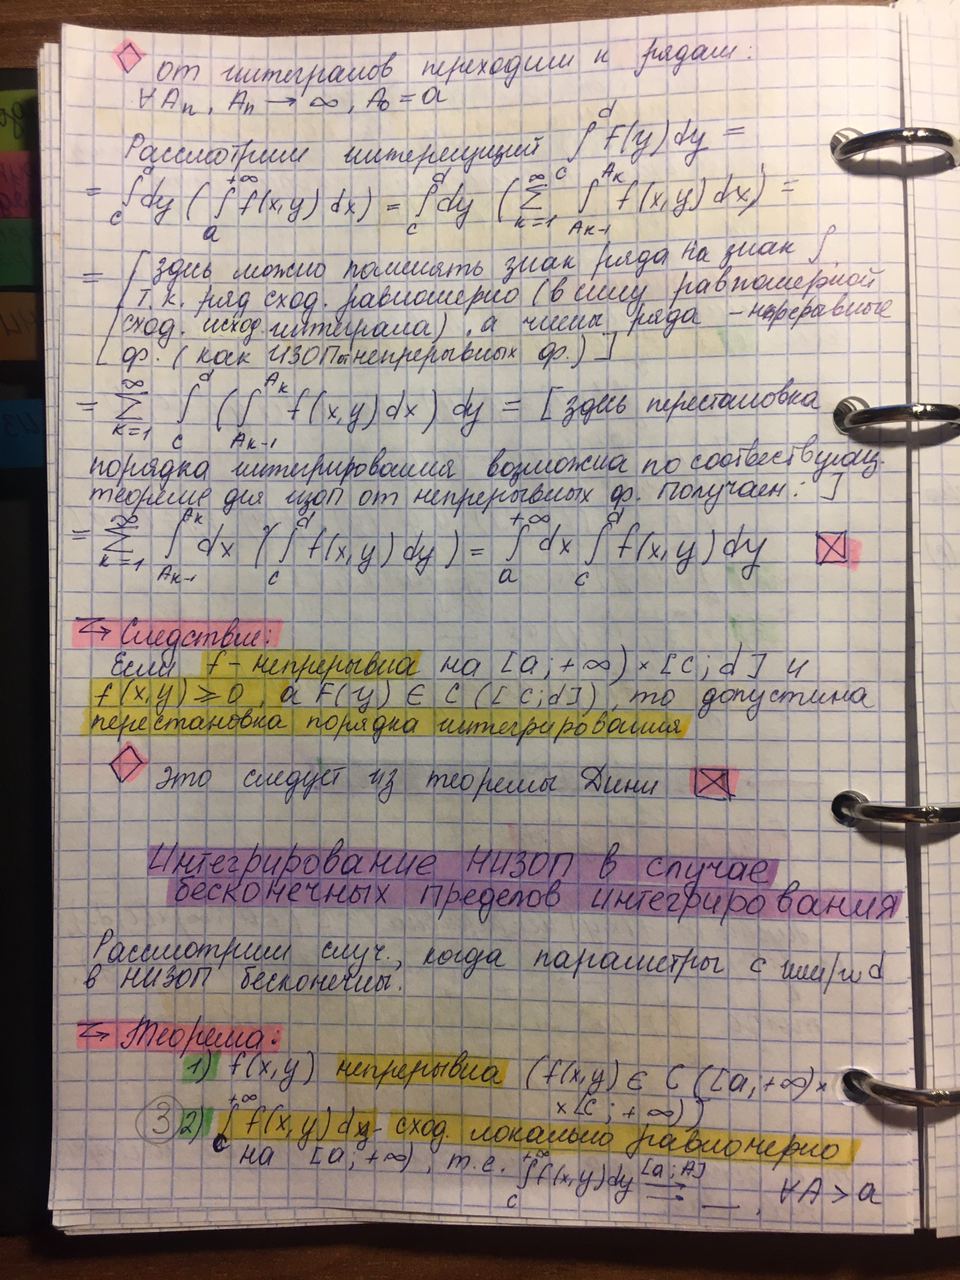 ◇ от интегралов переходим к рядам:
∀ Aₙ, Aₙ → ∞, A₀ = a
Рассмотрим интересующий ∫_c^d F(y) dy =
= ∫_c^d dy ( ∫_a^{+∞} f(x,y) dx ) = ∫_c^d dy ( Σ_{k=1}^∞ ∫_{A_{k-1}}^{A_k} f(x,y) dx ) =
= [ здесь можно поменять знак ряда на знак ∫,
т.к. ряд сход. равномерно (в силу равномерной
сход. исход. интеграла), а члены ряда -
ф. (как ИЗОП от непрерывных ф.) ]
= Σ_{k=1}^∞ ∫_c^d ( ∫_{A_{k-1}}^{A_k} f(x,y) dx ) dy = [ здесь перестановка
порядка интегрирования возможна по
теореме для ИЗОП от непрерывных ф. Получаем: ]
= Σ_{k=1}^∞ ∫_{A_{k-1}}^{A_k} dx ( ∫_c^d f(x,y) dy ) = ∫_a^{+∞} dx ∫_c^d f(x,y) dy ⊠
Следствие:
Если f - непрерывна на [a; +∞) × [c; d] и
f(x,y) ⩾ 0, а F(y) ∈ C([c; d]), то допустима
перестановка порядка интегрирования
◇ Это следует из теоремы Дини ⊠
Интегрирование НИЗОП в случае
бесконечных пределов интегрирования
Рассмотрим случ., когда параметры c или/и d
в НИЗОП бесконечны.
Теорема:
1) f(x,y) непрерывна (f(x,y) ∈ C([a; +∞) ×
× [c; +∞))
③ 2) ∫_c^{+∞} f(x,y) dy - сход. локально равномерно
на [a, +∞), т.е. ∫_c^{+∞} f(x,y) dy ⇉^{[a; A]} __, ∀ A > a